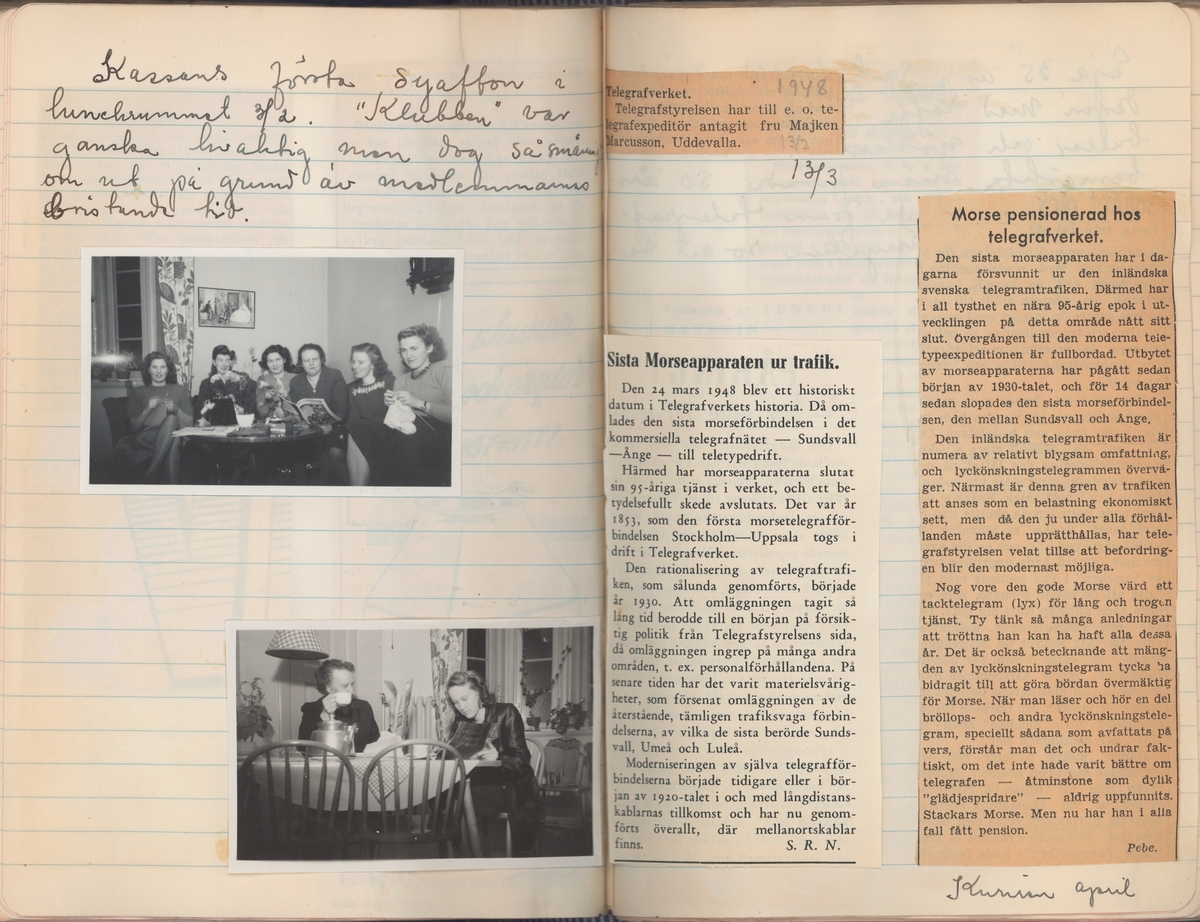 Kassans första Syafton i
lunchrummet 3/2. "Klubben" var
ganska livaktig men dog så småning
om ut på grund av medlemmarnas
bristande tid.
Telegrafverket. 1948
Telegrafstyrelsen har till e. o. te-
legrafexpeditör antagit fru Majken
Marcusson, Uddevalla. 13/3
13/3
Sista Morseapparaten ur trafik.
Den 24 mars 1948 blev ett historiskt
datum i Telegrafverkets historia. Då om-
lades den sista morseförbindelsen i det
kommersiella telegrafnätet — Sundsvall
—Ånge — till teletypedrift.
Härmed har morseapparaterna slutat
sin 95-åriga tjänst i verket, och ett be-
tydelsefullt skede avslutats. Det var år
1853, som den första morsetelegrafför-
bindelsen Stockholm—Uppsala togs i
drift i Telegrafverket.
Den rationalisering av telegraftrafi-
ken, som sålunda genomförts, började
år 1930. Att omläggningen tagit så
lång tid berodde till en början på försik-
tig politik från Telegrafstyrelsens sida,
då omläggningen ingrep på många andra
områden, t. ex. personalförhållandena. På
senare tiden har det varit materielsvårig-
heter, som försenat omläggningen av de
återstående, tämligen trafiksvaga förbin-
delserna, av vilka de sista berörde Sunds-
vall, Umeå och Luleå.
Moderniseringen av själva telegrafför-
bindelserna började tidigare eller i bör-
jan av 1920-talet i och med långdistans-
kablarnas tillkomst och har nu genom-
förts överallt, där mellanortskablar
finns. S. R. N.
Morse pensionerad hos
telegrafverket.
Den sista morseapparaten har i da-
garna försvunnit ur den inländska
svenska telegramtrafiken. Därmed har
i all tysthet en nära 95-årig epok i ut-
vecklingen på detta område nått sitt
slut. Övergången till den moderna tele-
typeexpeditionen är fullbordad. Utbytet
av morseapparaterna har pågått sedan
början av 1930-talet, och för 14 dagar
sedan slopades den sista morseförbindel-
sen, den mellan Sundsvall och Ånge.
Den inländska telegramtrafiken är
numera av relativt blygsam omfattning,
och lyckönskningstelegrammen övervä-
ger. Närmast är denna gren av trafiken
att anses som en belastning ekonomiskt
sett, men då den ju under alla förhål-
landen måste upprätthållas, har tele-
grafstyrelsen velat tillse att befordring-
en blir den modernast möjliga.
Nog vore den gode Morse värd ett
tacktelegram (lyx) för lång och trogen
tjänst. Ty tänk så många anledningar
att tröttna han kan ha haft alla dessa
år. Det är också betecknande att mäng-
den av lyckönskningstelegram tycks ha
bidragit till att göra bördan övermäktig
för Morse. När man läser och hör en del
bröllops- och andra lyckönskningstele-
gram, speciellt sådana som avfattats på
vers, förstår man det och undrar fak-
tiskt, om det inte hade varit bättre om
telegrafen — åtminstone som dylik
"glädjespridare" — aldrig uppfunnits.
Stackars Morse. Men nu har han i alla
fall fått pension.
Pebe.
Kuriren april